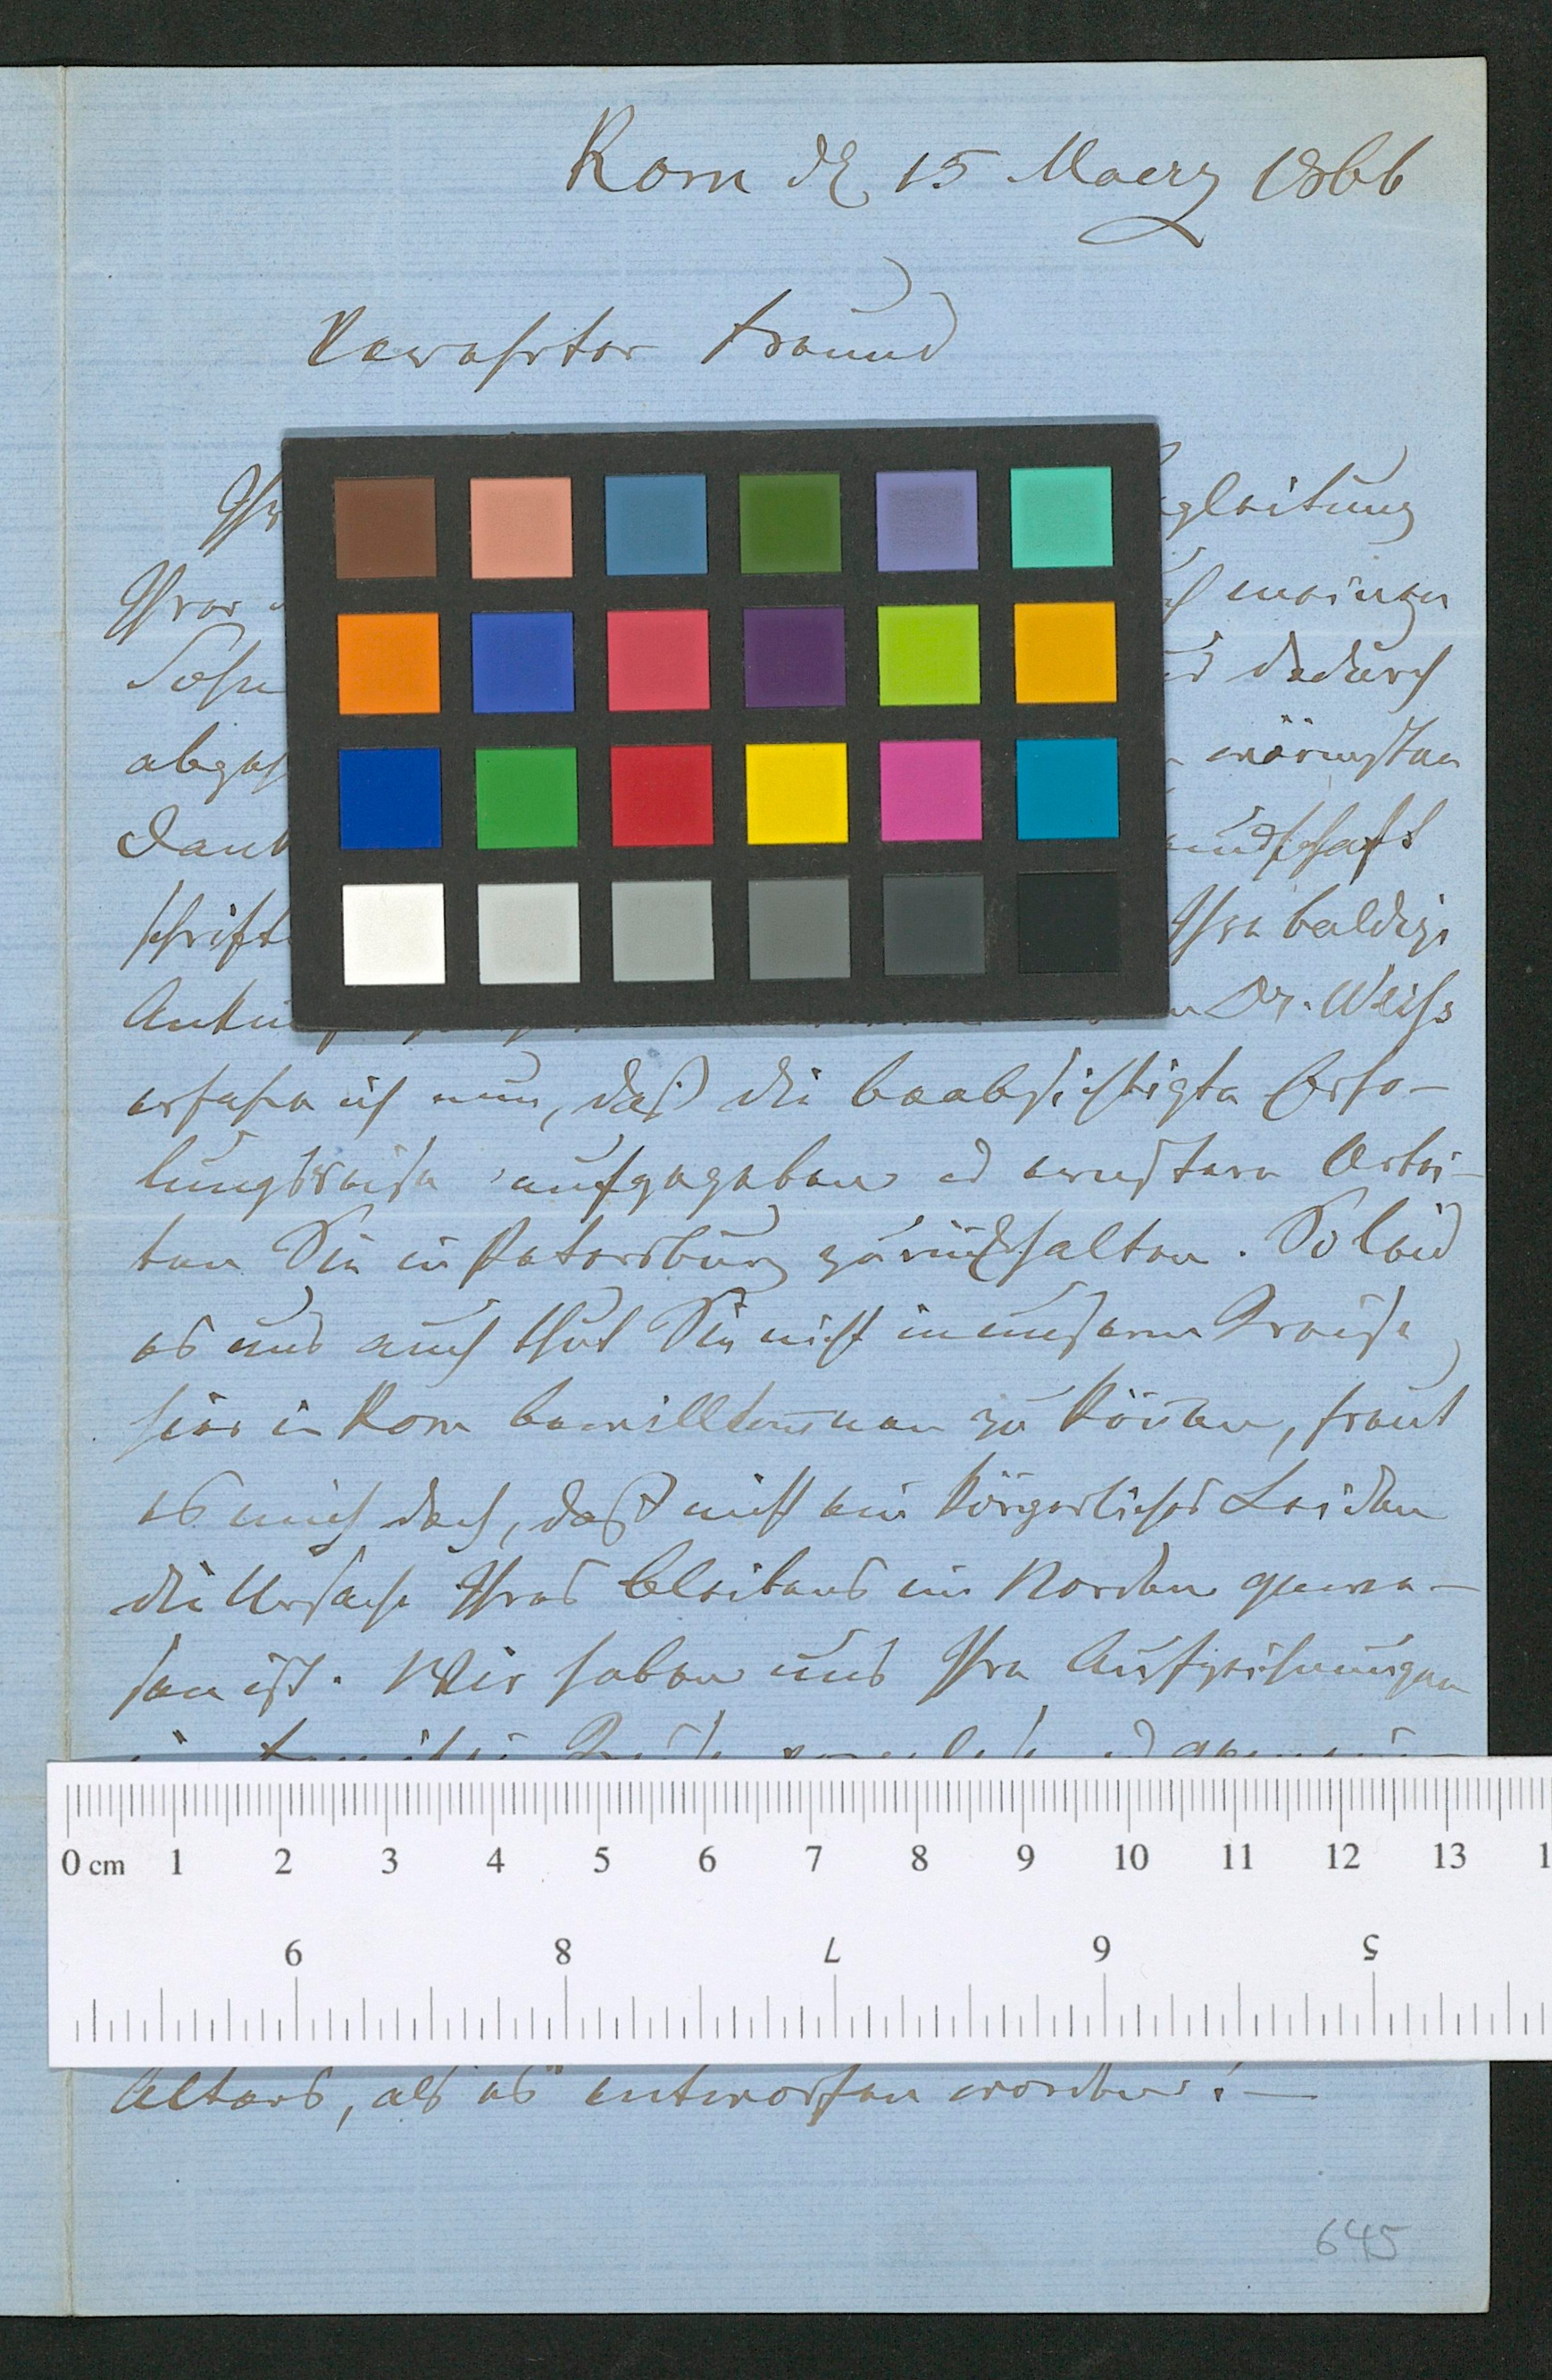 Rom d. 15 Maerz 1866
Verehrter Freund
gleitung
Ihrer meinigen
Sohn dadurch
abgeh wärmsten
Dank undschaft
schriftl Ihre baldige
Dr. Weiss
erfahre ich nun, daß die beabsichtigte Erho-
lungsreise aufgegeben u ernstere Arbei-
ten Sie in Petersburg zurückhalten. So leid
es uns auch thut Sie nicht in unserm Kreise
hier in Rom bewillkommnen zu können, freut
es mich doch, daß nicht ein körperliches Leiden
die Ursache Ihres Bleibens im Norden gewe-
sen ist. Wir haben uns Ihre Aufzeichnungen
0 cm 1 2 3 4 5 6 7 8 9 10 11 12 13 1
9 8 7 6 5
Alters, als es entworfen worden! —
645